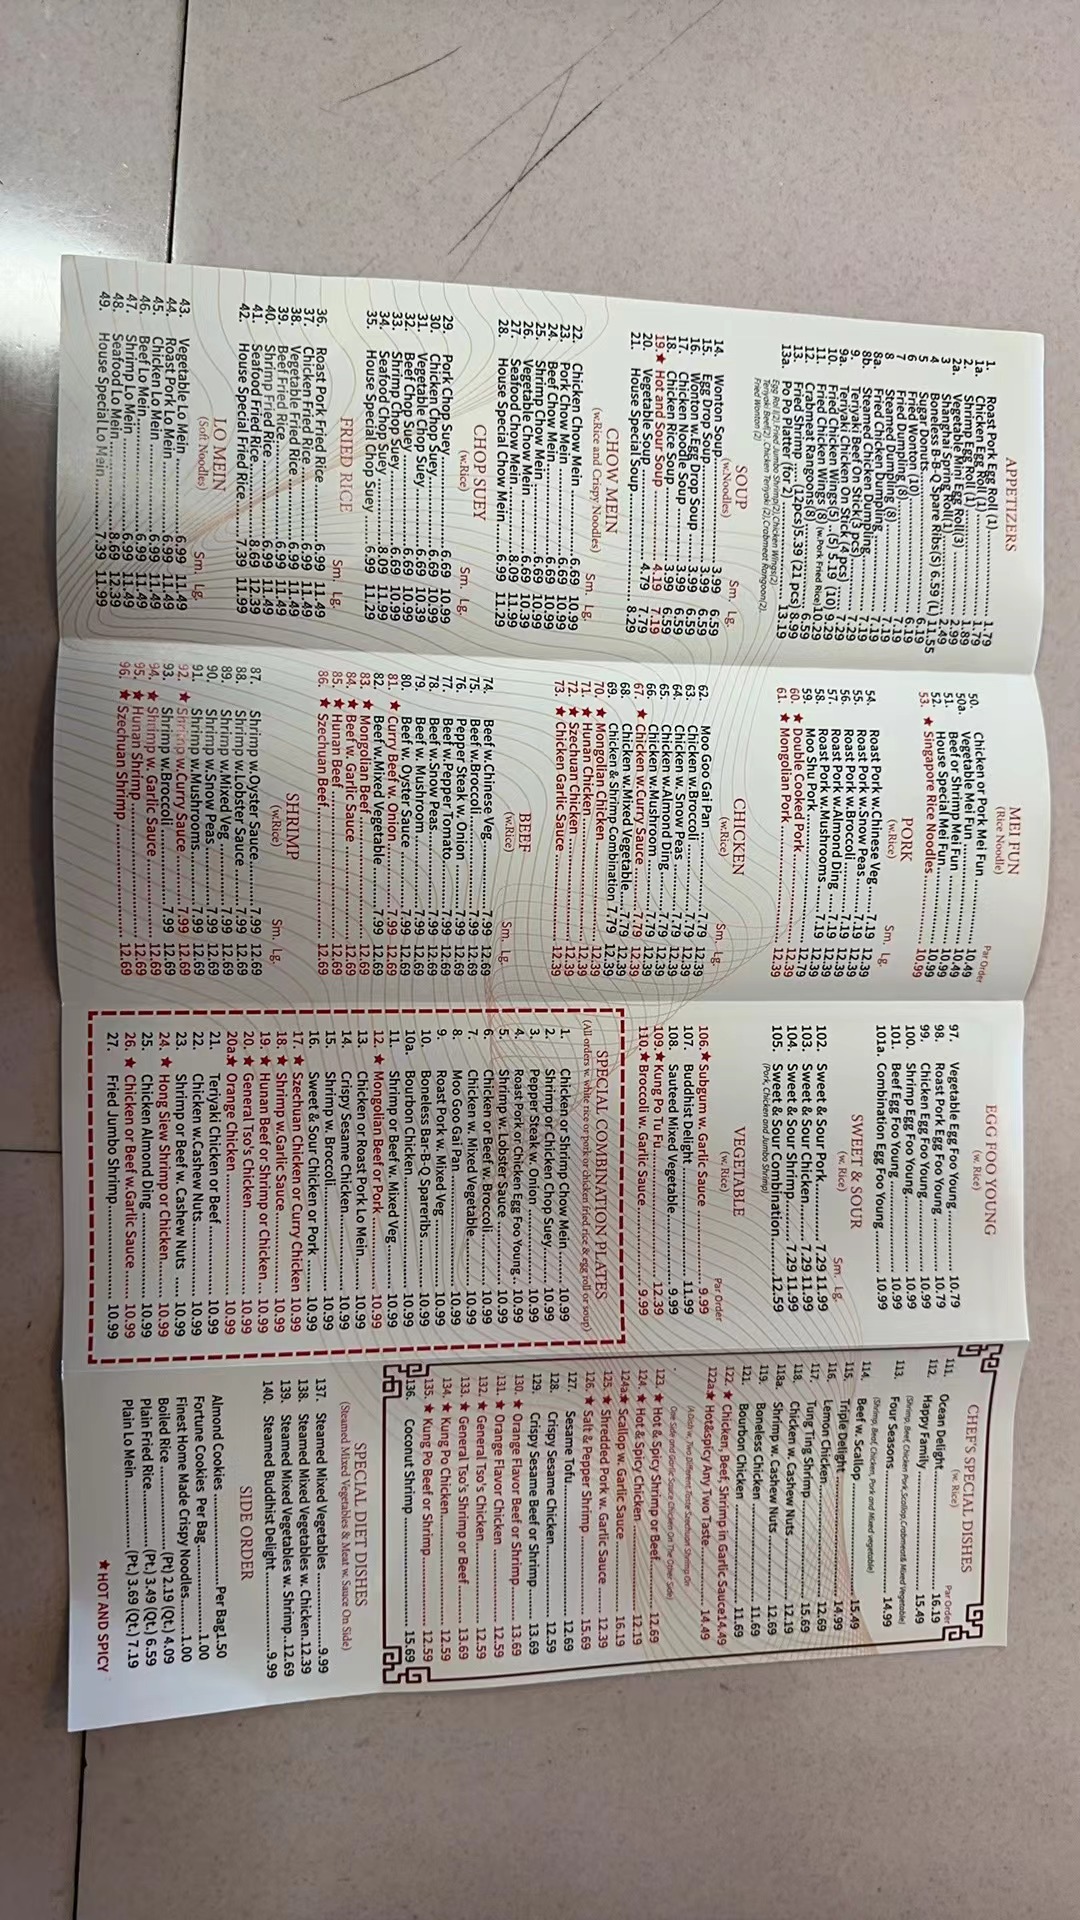 APPETIZERS
1. Roast Pork Egg Roll (1) 1.79
1a. Chicken Egg Roll (1) 1.79
2. Shrimp Egg Roll (1) 1.89
2a. Vegetable Mini Egg Roll(3) 2.99
3. Shanghai Spring Roll(1) 2.49
4 Boneless B-B-Q Spare Ribs(S) 6.59 (L) 11.55
5 Sugar Donuts 6.19
6 Fried Wonton (10) 6.19
7 Fried Dumpling (8) 7.19
8 Steamed Dumpling (8) 7.19
8a. Fried Chicken Dumpling 7.19
8b. Steamed Chicken Dumpling 7.19
9. Teriyaki Beef On Stick (3 pcs) 7.29
9a. Teriyaki Chicken On Stick (4 pcs) 7.29
10. Fried Chicken Wings(5) (5) 5.19 (10)
11. Fried Chicken Wings (8) (w.Pork Fried Rice)10.29
12. Crabmeat Rangoons(8) 6.59
13. Fried Shrimp (12pcs)5.39 (21 pcs) 8.99
13a. Po Po Platter (for 2) 13.19
Egg Roll(2),Fried Jumbo Shrimp(2),Chicken Wings(2)
Teriyaki Beef(2), Chicken Teriyaki (2),Crabmeat Rangoon(2),
Fried Wonton (2)
SOUP
(w.Noodles) Sm. Lg.
14. Wonton Soup 3.99 6.59
15. Egg Drop Soup 3.99 6.59
16. Wonton w.Egg Drop Soup 3.99 6.59
17. Chicken Noodle Soup 3.99 6.59
18. Chicken Rice Soup 3.99 6.59
19.★ Hot and Sour Soup 4.19 7.19
20. Vegetable Soup 4.79 7.79
21. House Special Soup 8.29
CHOW MEIN
(w.Rice and Crispy Noodles) Sm. Lg.
22. Chicken Chow Mein 6.69 10.99
23. Pork Chow Mein 6.69 10.99
24. Beef Chow Mein 6.69 10.99
25. Shrimp Chow Mein 6.69 10.99
26. Vegetable Chow Mein 6.69 10.39
27. Seafood Chow Mein 8.09 11.99
28. House Special Chow Mein 6.99 11.29
CHOP SUEY
(w.Rice) Sm. Lg.
29. Pork Chop Suey 6.69 10.99
30. Chicken Chop Suey 6.69 10.99
31. Vegetable Chop Suey 6.69 10.39
32. Beef Chop Suey 6.69 10.99
33. Shrimp Chop Suey 6.69 10.99
34. Seafood Chop Suey 8.09 11.99
35. House Special Chop Suey 6.99 11.29
FRIED RICE
Sm. Lg.
36. Roast Pork Fried Rice 6.99 11.49
37. Chicken Fried Rice 6.99 11.49
38. Vegetable Fried Rice 6.99 11.49
39. Beef Fried Rice 6.99 11.49
40. Shrimp Fried Rice 6.99 11.49
41. Seafood Fried Rice 8.69 12.39
42. House Special Fried Rice 7.39 11.99
LO MEIN
(Soft Noodles) Sm. Lg.
43. Vegetable Lo Mein 6.99 11.49
44. Roast Pork Lo Mein 6.99 11.49
45. Chicken Lo Mein 6.99 11.49
46. Beef Lo Mein 6.99 11.49
47. Shrimp Lo Mein 6.99 11.49
48. Seafood Lo Mein 8.69 12.39
49. House Special Lo Mein 7.39 11.99
MEI FUN
(Rice Noodle) Par Order
50. Chicken or Pork Mei Fun 10.49
50a. Vegetable Mei Fun 10.49
51. Beef or Shrimp Mei Fun 10.99
52. House Special Mei Fun 10.99
53. ★ Singapore Rice Noodles 10.99
PORK
(w.Rice) Sm. Lg.
54. Roast Pork w.Chinese Veg 7.19 12.39
55. Roast Pork w.Snow Peas 7.19 12.39
56. Roast Pork w.Broccoli 7.19 12.39
57. Roast Pork w.Almond Ding 7.19 12.39
58. Roast Pork w.Mushrooms 7.19 12.39
59. Moo Shu Pork 12.79
60. ★ Double Cooked Pork 12.39
61. ★ Mongolian Pork 12.39
CHICKEN
(w.Rice) Sm. Lg.
62. Moo Goo Gai Pan 7.79 12.39
63. Chicken w.Broccoli 7.79 12.39
64. Chicken w. Snow Peas 7.79 12.39
65. Chicken w.Almond Ding 7.79 12.39
66. Chicken w.Mushroom 7.79 12.39
67. ★ Chicken w.Curry Sauce 7.79 12.39
68. Chicken w.Mixed Vegetable 7.79 12.39
69. Chicken & Shrimp Combination 7.79 12.39
70. ★ Mongolian Chicken 12.39
71. ★ Hunan Chicken 12.39
72. ★ Szechuan Chicken 12.39
73. ★ Chicken Garlic Sauce 12.39
BEEF
(w.Rice) Sm. Lg.
74. Beef w.Chinese Veg 7.99 12.69
75. Beef w.Broccoli 7.99 12.69
76. Pepper Steak w. Onion 7.99 12.69
77. Beef w.Pepper Tomato 7.99 12.69
78. Beef w.Snow Peas 7.99 12.69
79. Beef w.Mushroom 7.99 12.69
80. Beef w.Oyster Sauce 7.99 12.69
81. ★ Curry Beef w. Onion 7.99 12.69
82. Beef w.Mixed Vegetable 7.99 12.69
83. ★ Mongolian Beef 12.69
84. ★ Beef w. Garlic Sauce 12.69
85. ★ Hunan Beef 12.69
86. ★ Szechuan Beef 12.69
SHRIMP
(w.Rice) Sm. Lg.
87. Shrimp w.Oyster Sauce 7.99 12.69
88. Shrimp w.Lobster Sauce 7.99 12.69
89. Shrimp w.Mixed Veg 7.99 12.69
90. Shrimp w.Snow Peas 7.99 12.69
91. Shrimp w.Mushrooms 7.99 12.69
92. ★ Shrimp w.Curry Sauce 7.99 12.69
93. Shrimp w.Broccoli 7.99 12.69
94. ★ Shrimp w. Garlic Sauce 12.69
95. ★ Hunan Shrimp 12.69
96. ★ Szechuan Shrimp 12.69
EGG FOO YOUNG
(w. Rice)
97. Vegetable Egg Foo Young 10.79
98. Roast Pork Egg Foo Young 10.79
99. Chicken Egg Foo Young 10.99
100. Shrimp Egg Foo Young 10.99
101. Beef Egg Foo Young 10.99
101a. Combination Egg Foo Young 10.99
SWEET & SOUR
(w. Rice) Sm. Lg.
102. Sweet & Sour Pork 7.29 11.99
103. Sweet & Sour Chicken 7.29 11.99
104. Sweet & Sour Shrimp 7.29 11.99
105. Sweet & Sour Combination 12.59
(Pork, Chicken and Jumbo Shrimp)
VEGETABLE
(w. Rice) Par Order
106.★ Subgum w. Garlic Sauce 9.99
107. Buddhist Delight 11.99
108. Sauteed Mixed Vegetable 9.99
109.★ Kung Po Tu Fu 12.39
110.★ Broccoli w. Garlic Sauce 9.99
SPECIAL COMBINATION PLATES
(All orders w. white rice or pork or chicken fried rice & egg roll or soup)
1. Chicken or Shrimp Chow Mein 10.99
2. Shrimp or Chicken Chop Suey 10.99
3. Pepper Steak w. Onion 10.99
4. Roast Pork or Chicken Egg Foo Young 10.99
5. Shrimp w. Lobster Sauce 10.99
6. Chicken or Beef w. Broccoli 10.99
7. Chicken w. Mixed Vegetable 10.99
8. Moo Goo Gai Pan 10.99
9. Roast Pork w. Mixed Veg 10.99
10. Boneless Bar-B-Q Spareribs 10.99
10a. Bourbon Chicken 10.99
11. Shrimp or Beef w. Mixed Veg 10.99
12. ★ Mongolian Beef or Pork 10.99
13. Chicken or Roast Pork Lo Mein 10.99
14. Crispy Sesame Chicken 10.99
15. Shrimp w. Broccoli 10.99
16. Sweet & Sour Chicken or Pork 10.99
17. ★ Szechuan Chicken or Curry Chicken 10.99
18. ★ Shrimp w.Garlic Sauce 10.99
19. ★ Hunan Beef or Shrimp or Chicken 10.99
20. ★ General Tso's Chicken 10.99
20a★ Orange Chicken 10.99
21. Teriyaki Chicken or Beef 10.99
22. Chicken w.Cashew Nuts 10.99
23. Shrimp or Beef w. Cashew Nuts 10.99
24. ★ Hong Slew Shrimp or Chicken 10.99
25. Chicken Almond Ding 10.99
26. ★ Chicken or Beef w.Garlic Sauce 10.99
27. Fried Jumbo Shrimp 10.99
CHEF'S SPECIAL DISHES
(w. Rice) Par Order
111. Ocean Delight 16.19
112. Happy Family 15.49
(Shrimp, Beef, Chicken Pork,Scallop,Crabmeat& Mixed Vegetable)
113. Four Seasons 14.99
(Shrimp, Beef, Chicken, Pork and Mixed vegetable)
114. Beef w. Scallop 15.49
115. Triple Delight 14.99
116. Lemon Chicken 12.69
117. Tung Ting Shrimp 15.69
118. Chicken w. Cashew Nuts 12.19
118a. Shrimp w. Cashew Nuts 12.69
119. Boneless Chicken 11.69
121. Bourbon Chicken 11.69
122. ★ Chicken, Beef, Shrimp in Garlic Sauce14.49
122a★ Hot&spicy Any Two Taste 14.49
(A Dish w. Two Different Taste Szechuan Shrimp On
One Side and Garlic Sauce Chicken On The Other Side)
123. ★ Hot & Spicy Shrimp or Beef 12.69
124. ★ Hot & Spicy Chicken 12.19
124a★ Scallop w. Garlic Sauce 16.19
125. ★ Shredded Pork w. Garlic Sauce 12.39
126. ★ Salt & Pepper Shrimp 15.69
127. Sesame Tofu 12.69
128. Crispy Sesame Chicken 12.59
129. Crispy Sesame Beef or Shrimp 13.69
130. ★ Orange Flavor Beef or Shrimp 13.69
131. ★ Orange Flavor Chicken 12.59
132. ★ General Tso's Chicken 12.59
133. ★ General Tso's Shrimp or Beef 13.69
134. ★ Kung Po Chicken 12.59
135. ★ Kung Po Beef or Shrimp 12.59
136. Coconut Shrimp 15.69
SPECIAL DIET DISHES
(Steamed Mixed Vegetables & Meat w. Sauce On Side)
137. Steamed Mixed Vegetables 9.99
138. Steamed Mixed Vegetables w. Chicken 12.39
139. Steamed Mixed Vegetables w. Shrimp 12.69
140. Steamed Buddhist Delight 9.99
SIDE ORDER
Almond Cookies Per Bag1.50
Fortune Cookies Per Bag 1.00
Finest Home Made Crispy Noodles 1.00
Boiled Rice (Pt) 2.19 (Qt.) 4.09
Plain Fried Rice (Pt.) 3.49 (Qt.) 6.59
Plain Lo Mein (Pt.) 3.69 (Qt.) 7.19
★ HOT AND SPICY